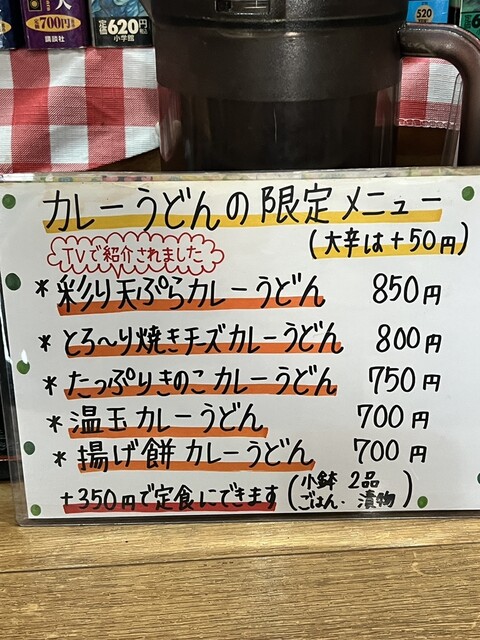 人
定価700円
講談社
定価620円
小学館
520
カレーうどんの限定メニュー
(大辛は+50円)
TVで紹介されました
*彩り天ぷらカレーうどん 850円
*とろ〜り焼きチーズカレーうどん 800円
*たっぷりきのこカレーうどん 750円
*温玉カレーうどん 700円
*揚げ餅カレーうどん 700円
+350円で定食にできます(小鉢2品
ごはん・漬物)